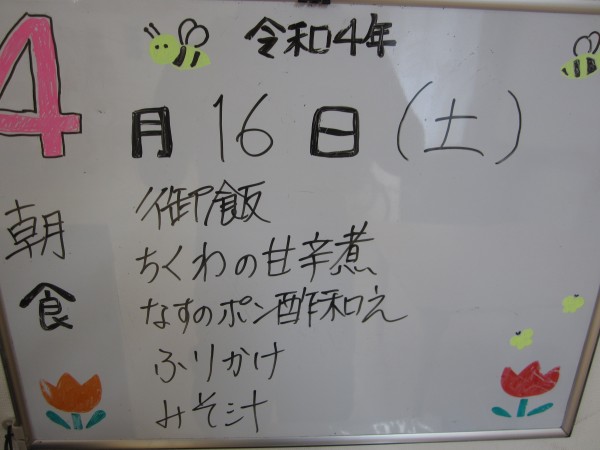 令和4年
4月16日(土)
朝食
御飯
ちくわの甘辛煮
なすのポン酢和え
ふりかけ
みそ汁